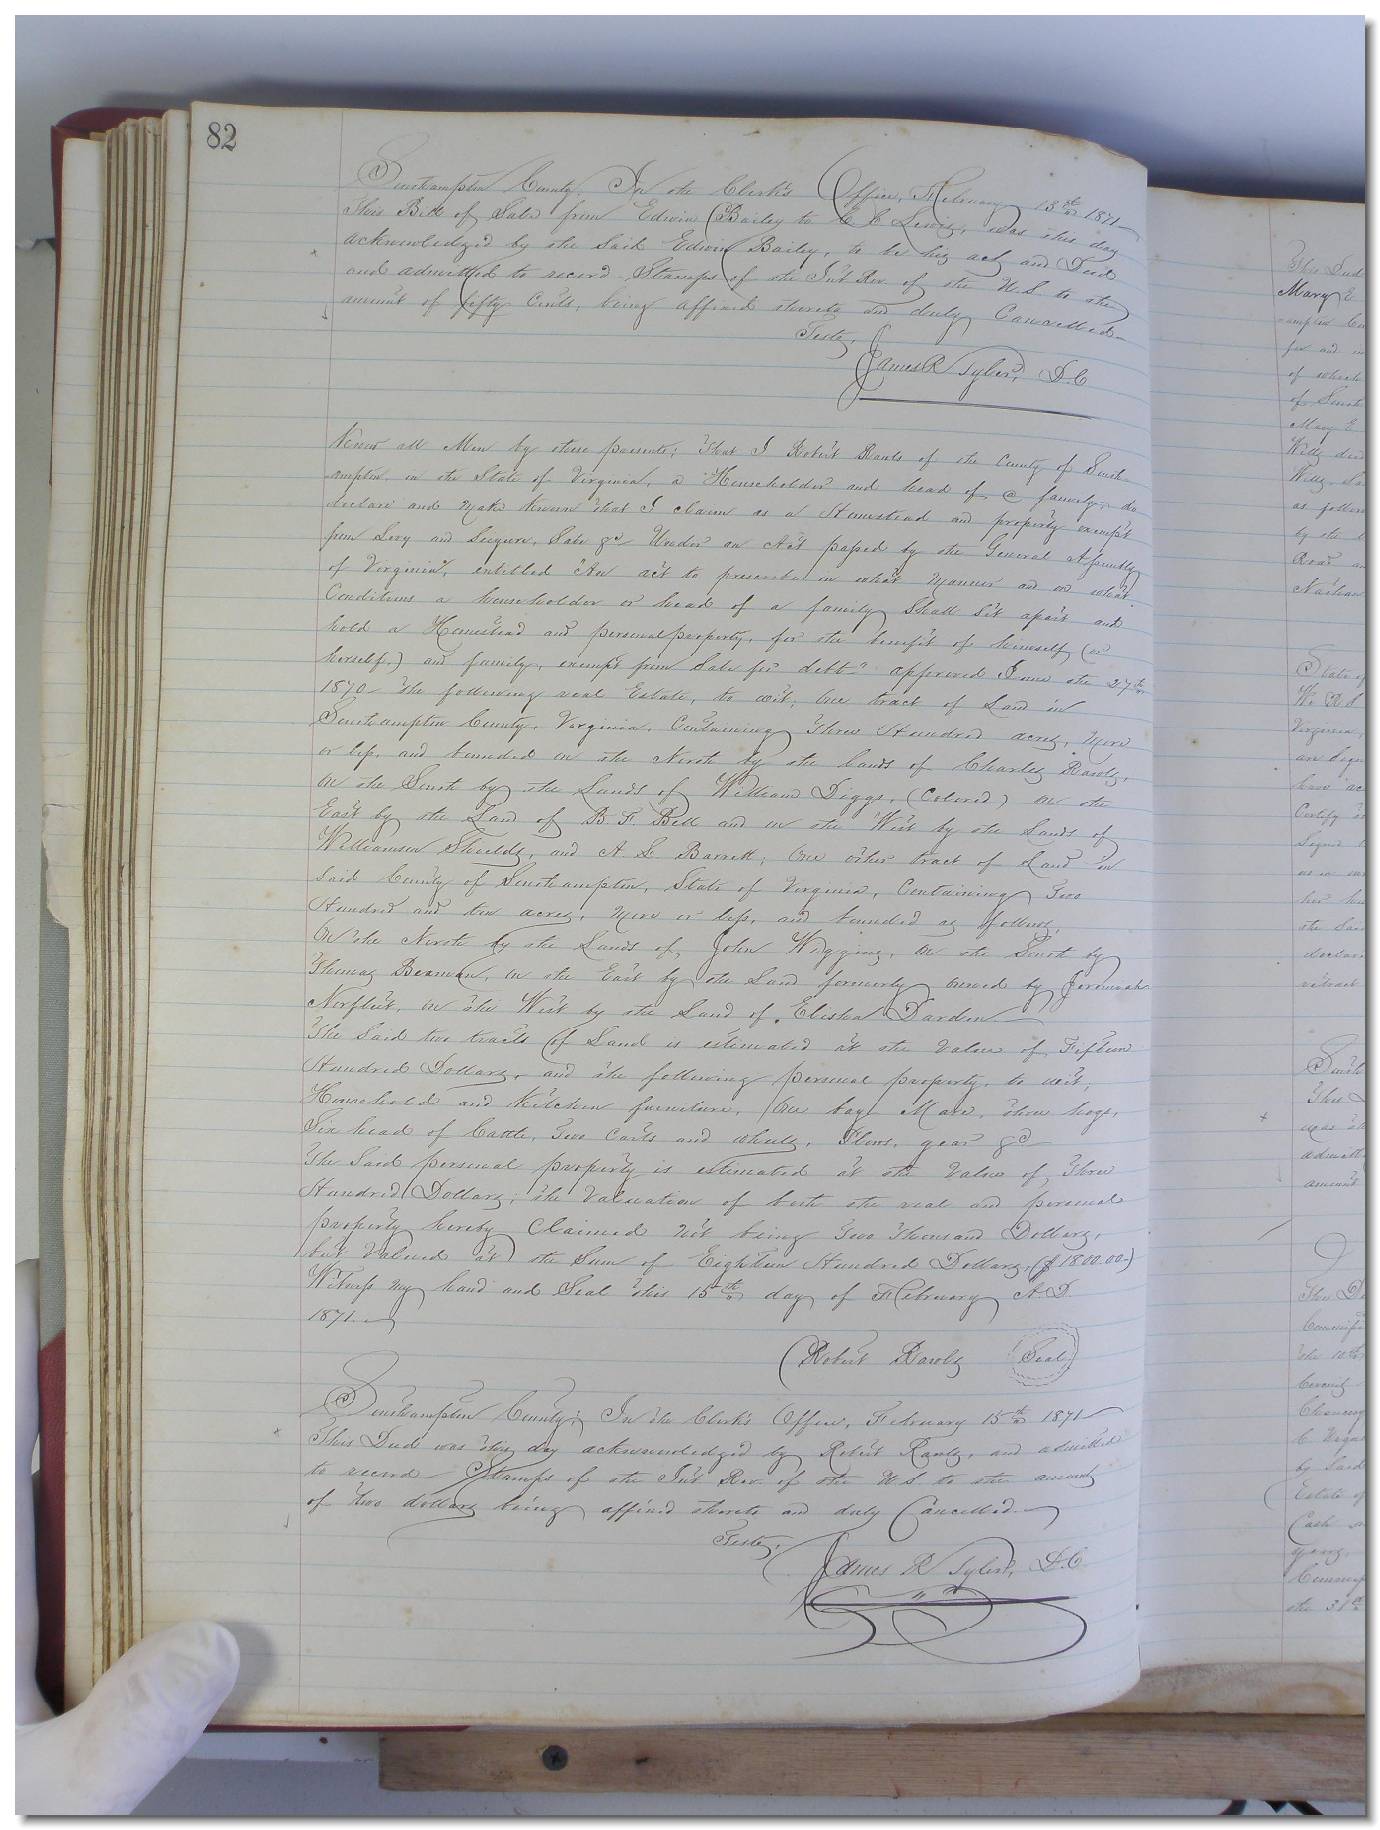 82
Southampton County. In the Clerk's Office, February 13th 1871
This Bill of Sale from Edwin Bailey to E C Lewis, was this day
acknowledged by the said Edwin Bailey, to be his act and Deed
and admitted to record. Stamps of the Int Rev. of the U.S. to the
amount of fifty Cents, being affixed thereto and duly Cancelled
Teste,
James R Tyler, D.C
Know all Men by these presents; that I Robert Rawls of the County of South-
ampton, in the State of Virginia, a Householder and head of a family, do
declare and make known that I claim as a Homestead and property exempt
from Levy and Seizure, Sale &c Under an Act passed by the General Assembly
of Virginia, entitled "An act to prescribe in what manner and on what
Conditions a householder or head of a family Shall Set apart and
hold a Homestead and personal property, for the benefit of himself (or
herself,) and family, exempt from Sale for debt" approved June the 27th
1870 the following real Estate, to wit; One tract of Land in
Southampton County, Virginia, Containing Three Hundred acres, More
or less, and bounded on the North by the lands of Charles Rawls,
on the South by the Lands of William Diggs, (Colored) on the
East by the Land of B. F. Bell and on the West by the Lands of
Williamson Shields, and A. L. Barrett; One other tract of Land in
Said County of Southampton, State of Virginia, Containing Two
Hundred and ten acres, More or less, and bounded as follows,
On the North by the Lands of John Wiggins, on the South by
Thomas Beaman, on the East by the Land formerly owned by Jeremiah
Norfleet, on the West by the Land of Elisha Darden
The Said two tracts of Land is estimated at the Value of Fifteen
Hundred Dollars, and the following personal property, to wit,
Household and Kitchen furniture, One bay Mare, three hogs,
Six head of Cattle, Two Carts and wheels, Plows, gear &c
The Said personal property is estimated at the Value of Three
Hundred Dollars; the Valuation of both the real and personal
property hereby Claimed not being Two Thousand Dollars,
but Valued at the Sum of Eighteen Hundred Dollars, ($1800.00)
Witness my hand and Seal this 15th day of February A.D.
1871.
Robert Rawls Seal
Southampton County; In the Clerk's Office, February 15th 1871
This Deed was this day acknowledged by Robert Rawls, and admitted
to record Stamps of the Int Rev. of the U.S. to the amount
of two dollars being affixed thereto and duly Cancelled.
Teste,
James R Tyler, D.C.
This Deed
Mary E
of which
Mary E
as follow
by the
Nathan
State of
W. R S
Virginia,
Certify
the Said
This
was th
admitt
amount
This D
the 10th
by Said
Estate of
Cash
the 31st